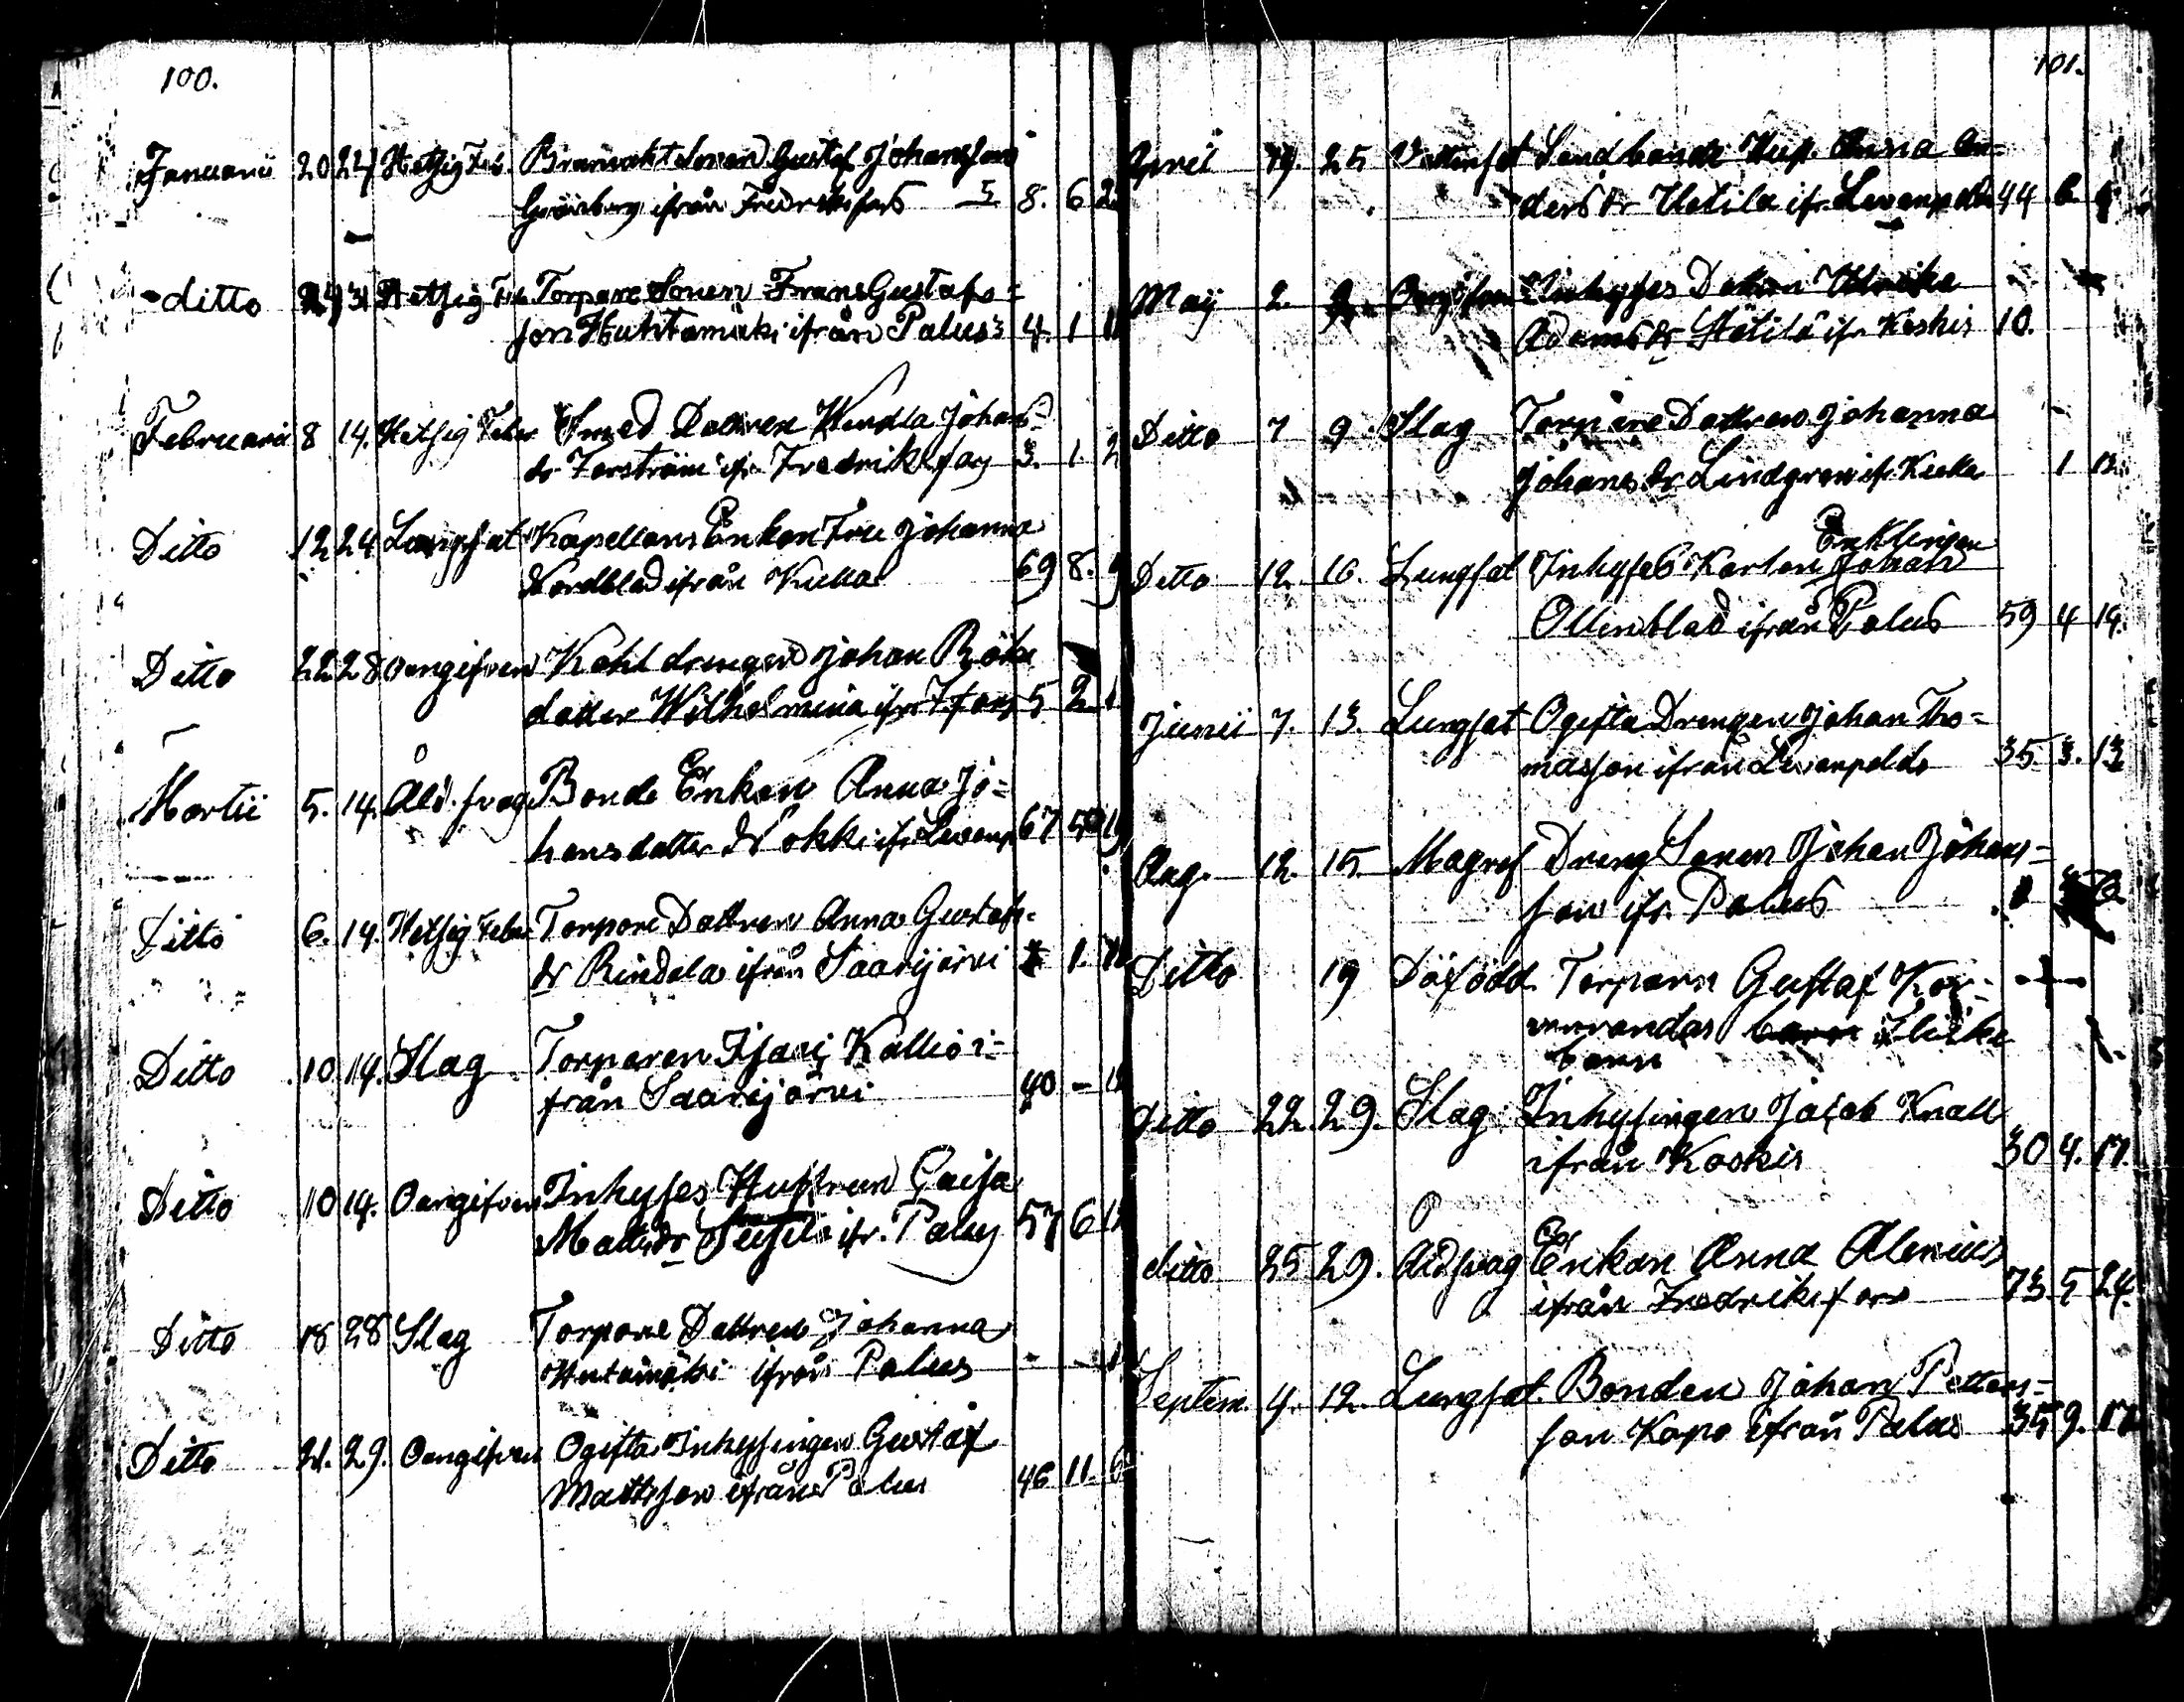 100.
Januarii 20 24 Hetsig Feb. Brukvakt Sonen Gustaf Johansson
Grönberg ifrån Fredriksfors 8. 6 2
ditto 24 31 Hetsig Feb. Torpare Sonen Frans Gustafs=
son Huhtamäki ifrån Palus 4. 1 11
Februarii 8 14. Hetsig Feber Smed Dottren Wendla Johans=
dr Forström ifr. Fredriksfors 3. 1. 2
Ditto 12 24 Lungsot Kapellans Enkan Fru Johanna
Nordblad ifrån Kulla 69 8. 9
Ditto 22 28 Oangifven Kohldrengen Johan Röks
dotter Wilhelmina ifr. Ffors 5 2
Martii 5. 14. Åld. svag Bonde Enkan Anna Jo=
hansdotter Nokki ifr. Levanp. 67 5 19
Ditto 6. 14. Hetsig Feber Torpare Dottren Anna Gustafs=
dr Rindala ifrån Saarijärvi 1.
Ditto 10 14. Slag Torparen Isaac Kallio i=
från Saarijärvi 40 -
Ditto 10 14. Oangifven Inhyses Hustrun Caisa
Mattsdr ifr. Palus 57 6
Ditto 18 28 Slag Torpare Dottren Johanna
Hutamäki ifrån Palus - -
Ditto 21. 29. Oangifven Ogifta Inhysingen Gustaf
Mattsson ifrån Palus 46 11. 6
101.
April 19. 25 Landbonde Hust. Anna An=
dersdr Uetila ifr. Levanpelto 44
Maij 2. 9. Oangifven Inhyses Dottren Ulrika
Adamsdr ifr. Koskis 10.
Ditto 7 9. Slag Torpare Dottren Johanna
Johansdr Lindgren ifr. Kulla 1 13
Enklingen
Ditto 12. 16. Lungsot Inhyses Karlen Johan
Ollenblad ifrån Palus 59 4 14.
Junii 7. 13. Lungsot Ogifta Drengen Johan Tho=
masson ifrån Levanpeldo 35 3. 13
Aug. 12. 15. Magref Dreng Sonen Johan Johans=
son ifr. Palus
Ditto 19 Döfödd Torparn Gustaf Kor=
barn flicke
barn
Ditto 22. 29. Slag Inhysingen Jacob Knall
ifrån Koskis 30 4. 17.
ditto 25 29. Åld svag Enkan Anna Alenius
ifrån Fredriksfors 73 5 24.
Septem. 4. 12. Lungsot Bonden Johan Petters=
son Kopo ifrån Palus 35 9. 17